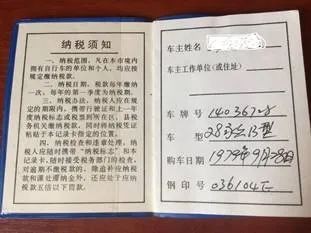 纳税须知
一、纳税范围，凡在本市境内
拥有自行车的单位和个人，均应按
规定缴纳税款。
二、纳税日期，税款每年缴纳
一次，每年的第一季度为纳税期。
三、纳税办法，纳税人应在规
定的期限内，携带行驶证和上一年
度纳税标志或税票到所在区、县税
务机关缴纳税款，同时将纳税凭证
粘贴于本记录卡指定的位置。
四、纳税检查和违章处理，纳
税人应随时携带“纳税标志”和本
记录卡，随时接受税务部门的检查，
对逾期不缴税款的，除追补应纳税
款和课处滞纳金外，还应处于应纳
税款五倍以下罚款。
车主姓名
车主工作单位(或住址)
车牌号 1403672
车型 28 13型
购车日期 1979年9月28日
钢印号 036104